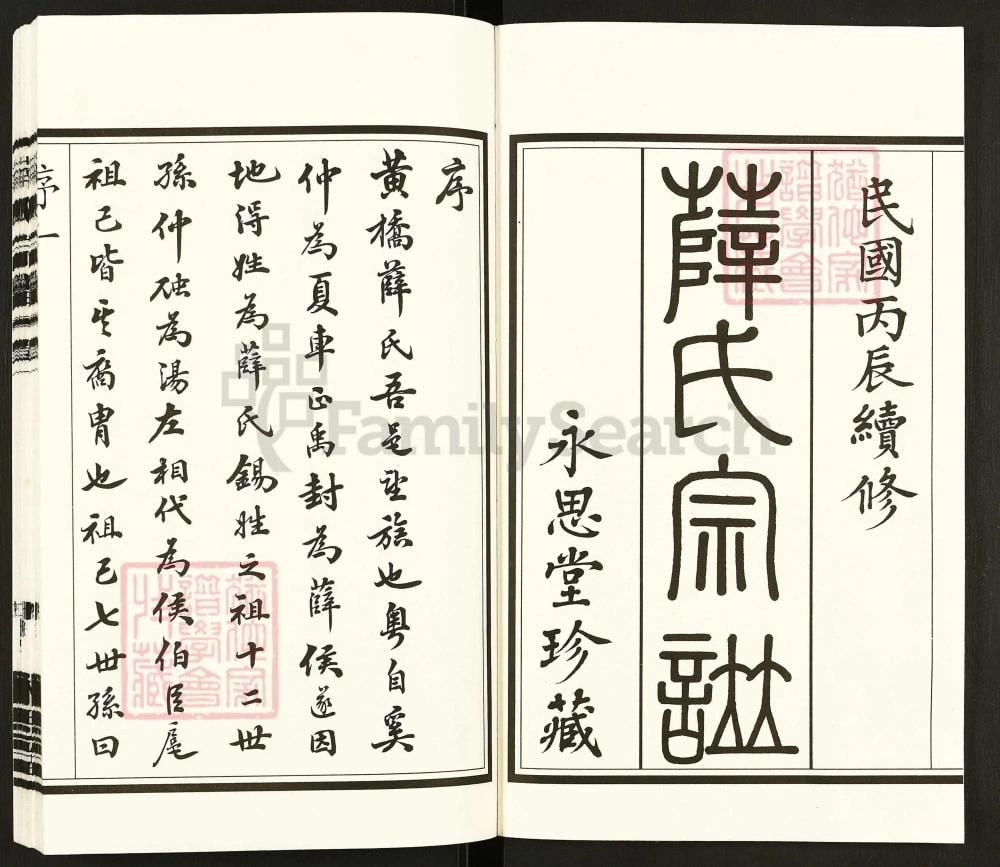 民國丙辰續修
薛氏宗譜
永思堂珍藏
序
黄橋薛氏吾邑望族也粵自奚
仲為夏車正禹封為薛侯遂因
地得姓為薛氏錫姓之祖十二世
孫仲虺為湯左相代為侯伯臣扈
祖己皆其裔胄也祖己七世孫曰
序一
FamilySearch